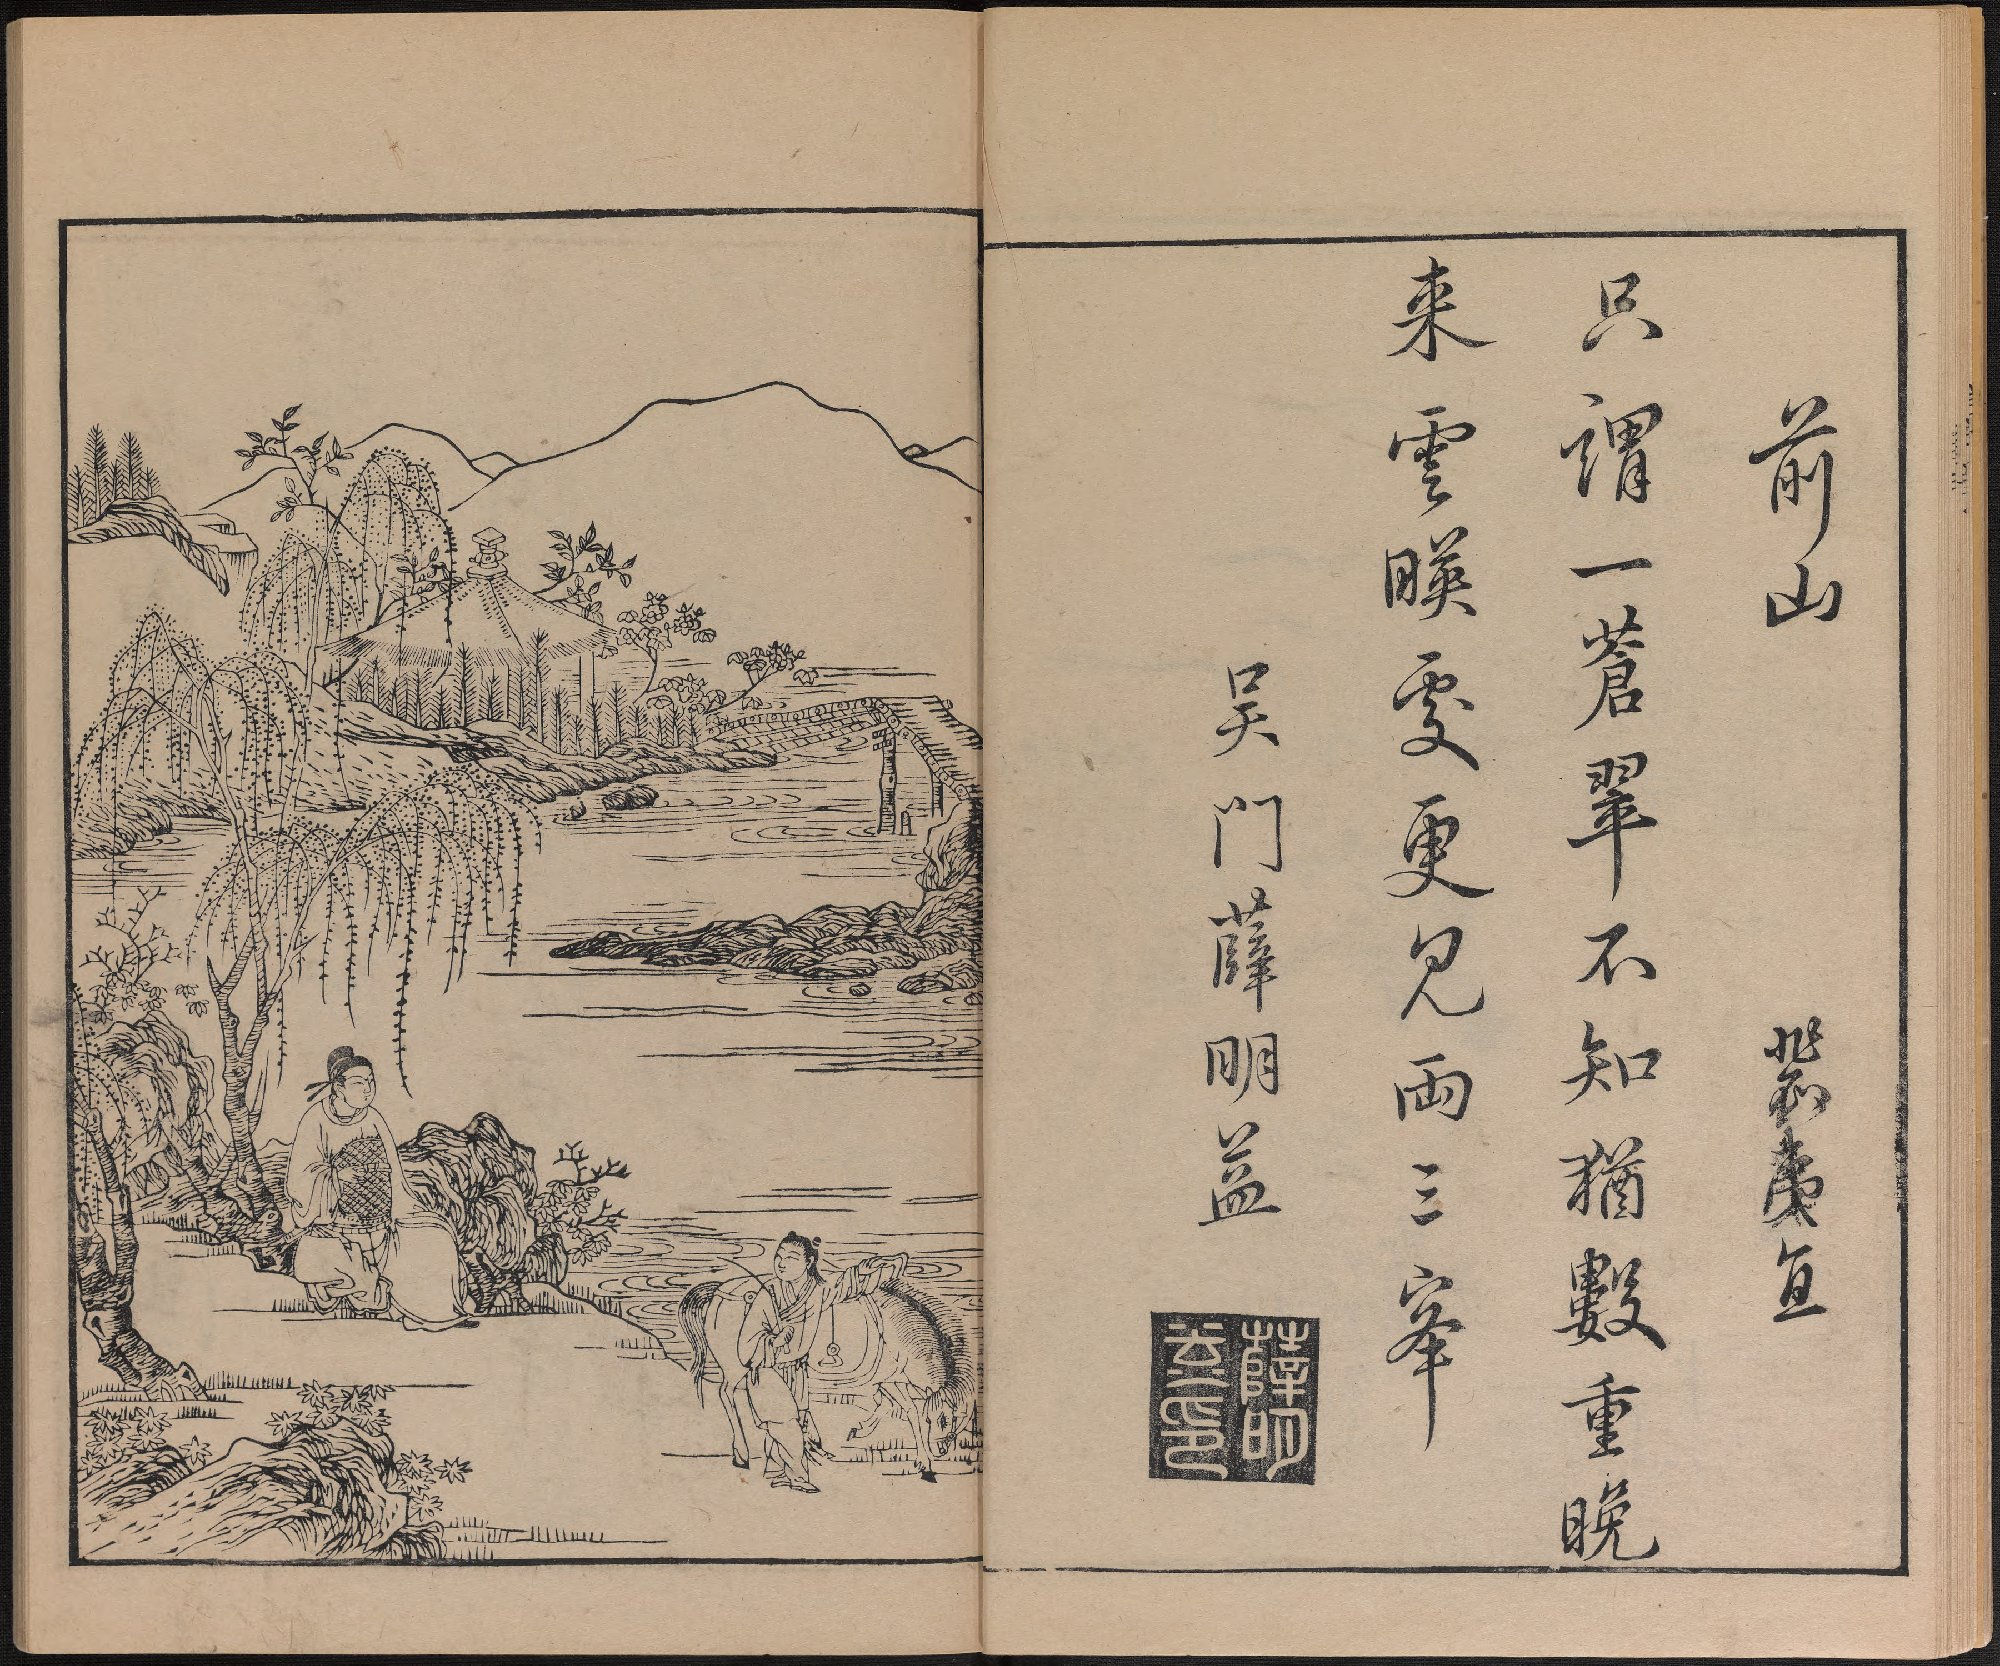 前山 裴夷直
只謂一蒼翠不知猶數重晚
来雲映處更見兩三峯
吳門薛明益
薛明
益印